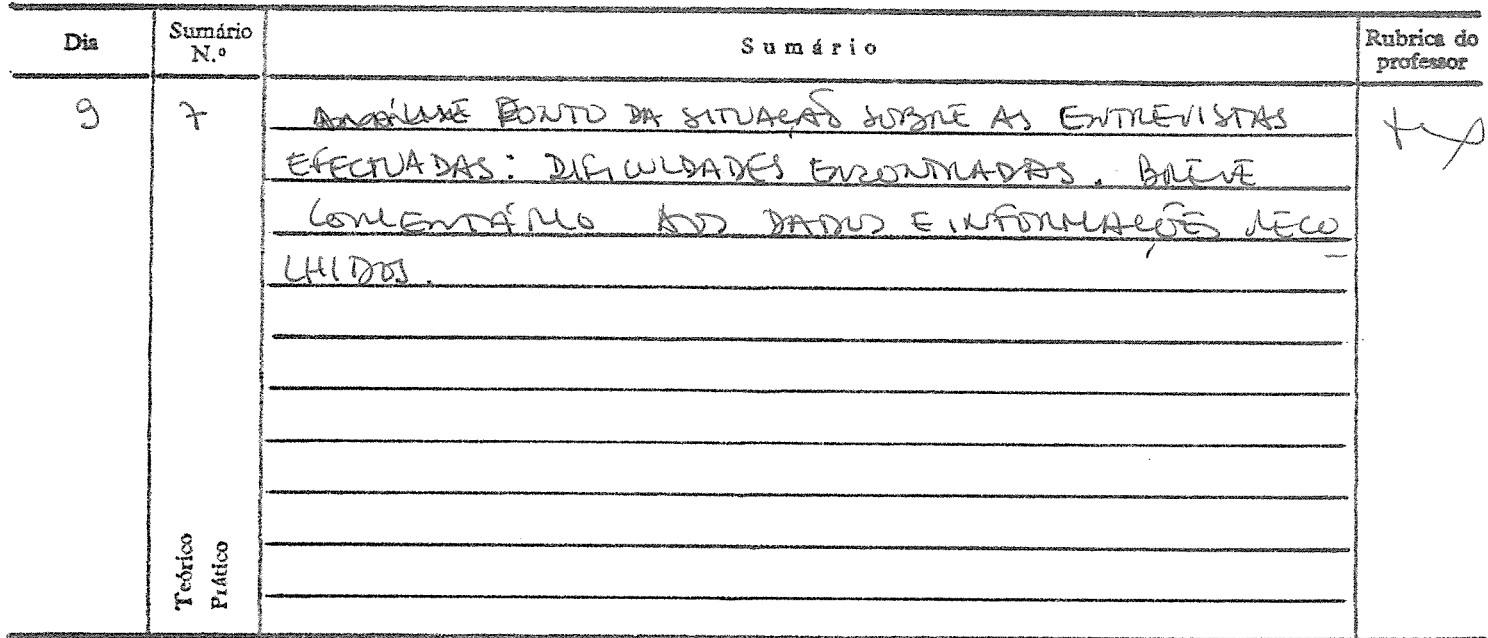 Dia
Sumário N.º
Sumário
Rubrica do professor
9
7
PONTO DA SITUAÇÃO SOBRE AS ENTREVISTAS
EFECTUADAS: DIFICULDADES ENCONTRADAS. BREVE
COMENTÁRIO AOS DADOS E INFORMAÇÕES RECO
LHIDOS.
Teórico
Prático